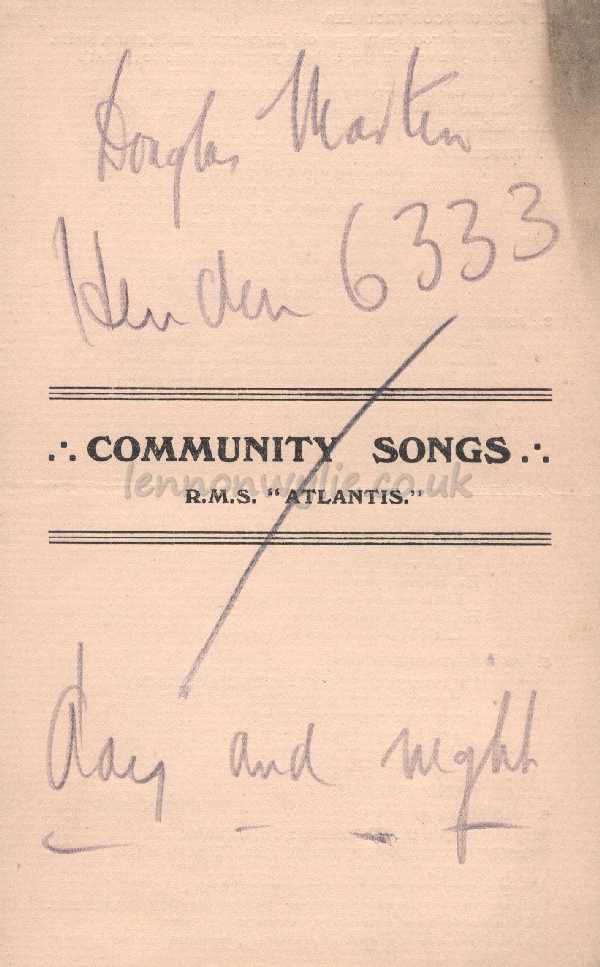 Douglas Martin
Hendon 6333
∴ COMMUNITY SONGS ∴
lennonwylie.co.uk
R.M.S. "ATLANTIS."
day and night